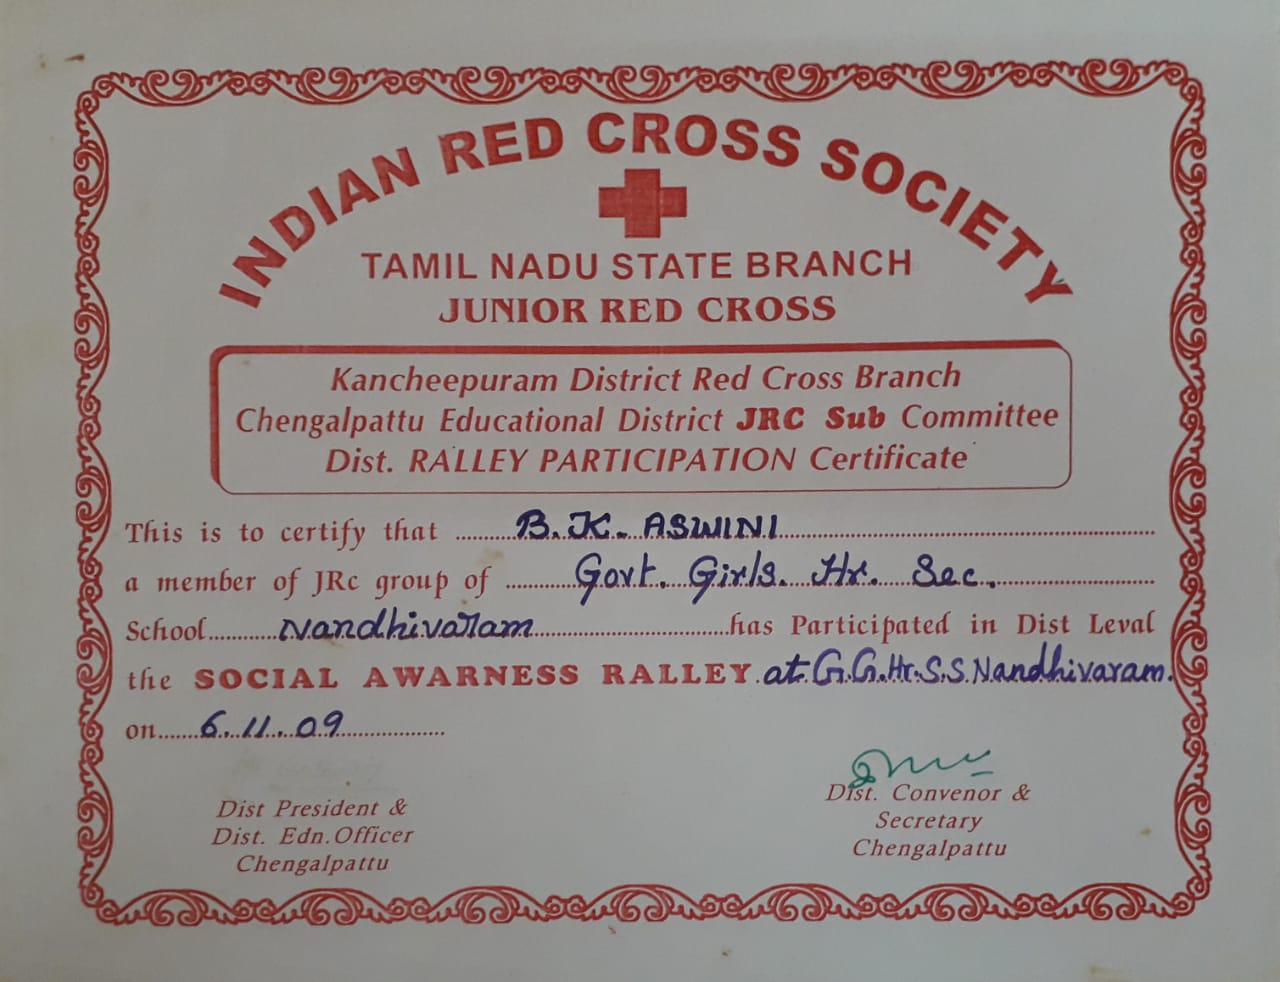 INDIAN RED CROSS SOCIETY
TAMIL NADU STATE BRANCH
JUNIOR RED CROSS
Kancheepuram District Red Cross Branch
Chengalpattu Educational District JRC Sub Committee
Dist. RALLEY PARTICIPATION Certificate
This is to certify that B.K. ASWINI
a member of JRc group of Govt. Girls. Hr. Sec.
School Nandhivaram has Participated in Dist Leval
the SOCIAL AWARNESS RALLEY at G.G.Hr.S.S.Nandhivaram.
on 6.11.09
Dist President &
Dist. Edn.Officer
Chengalpattu
Dist. Convenor &
Secretary
Chengalpattu